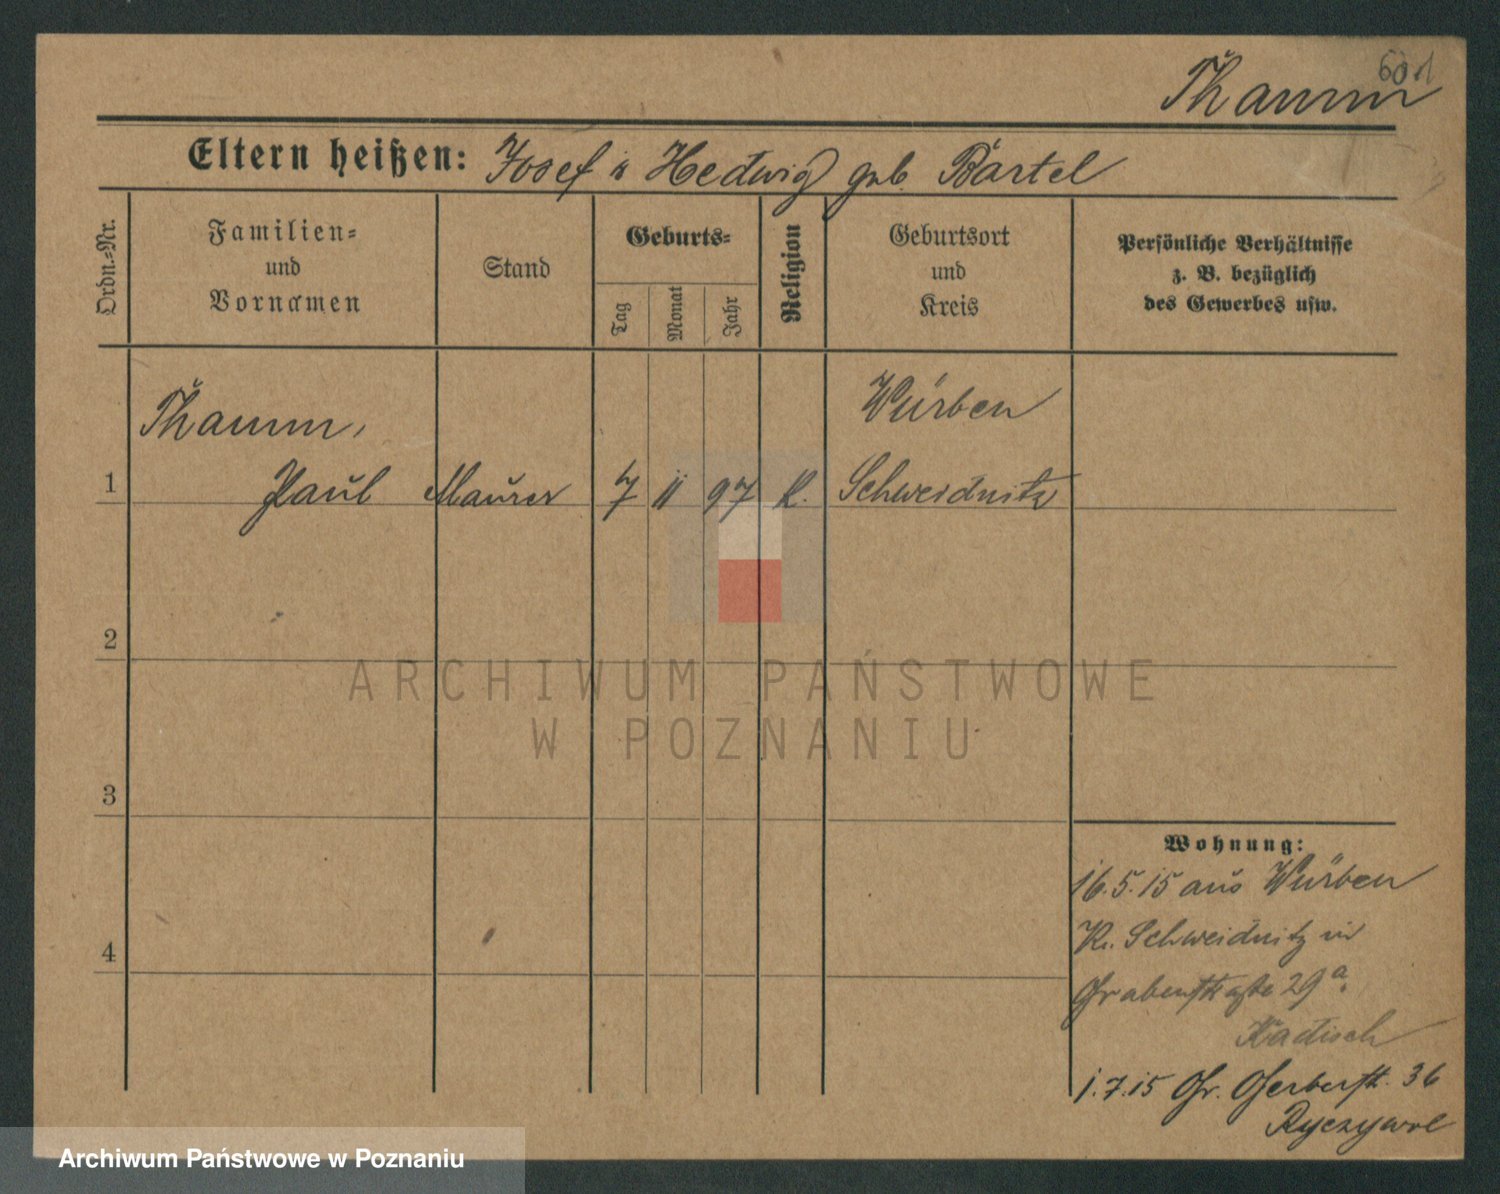 601
Thamm
Eltern heißen: Josef u Hedwig geb. Bartel
Ordn.-Nr.
Familien-
und
Vornamen
Stand
Geburts-
Tag
Monat
Jahr
Religion
Geburtsort
und
Kreis
Persönliche Verhältnisse
z. B. bezüglich
des Gewerbes usw.
Thamm, Würben
1 Paul Maurer 7 11 97 K. Schweidnitz
2
3
4
Wohnung:
16.5.15 aus Würben
Kr. Schweidnitz in
Grabenstraße 29a.
Kadisch
1.7.15 Gr. Gerberstr. 36
Ryczywol
ARCHIWUM PAŃSTWOWE
W POZNANIU
Archiwum Państwowe w Poznaniu